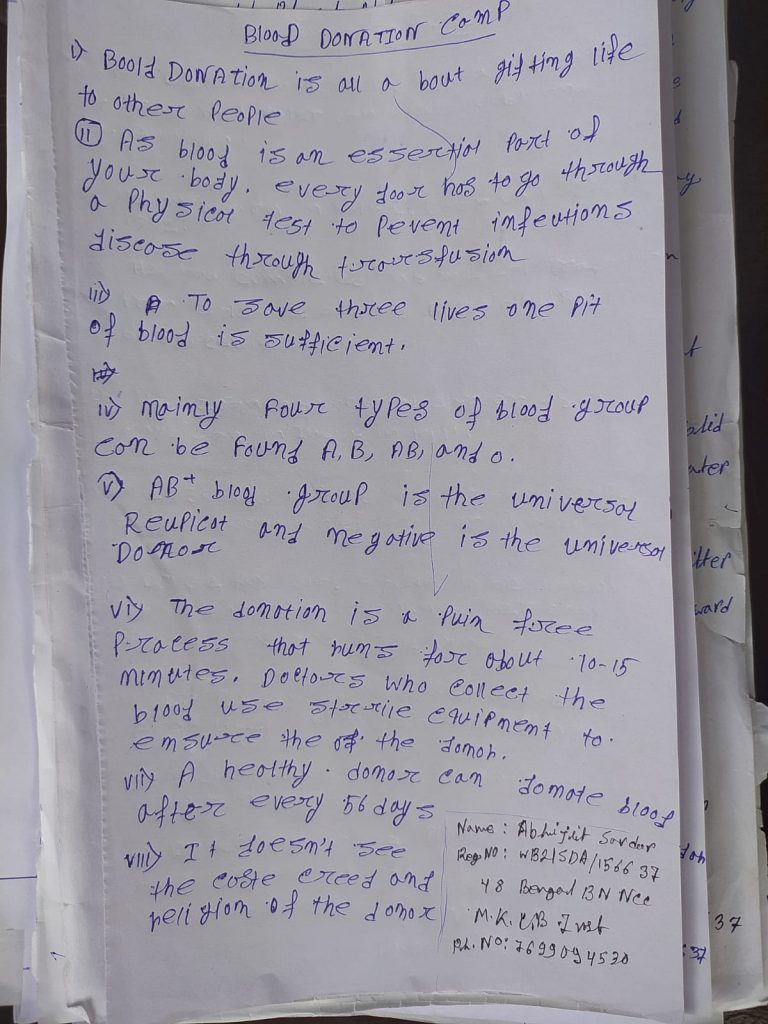 Blood Donation Camp
i) Boold Donation is all a bout gifting life
to other people
ii) As blood is an essential part of
your body. every door has to go through
a physical test to Pevent infeutions
discose through transfusion
iii) To save three lives one Pit
of blood is sufficient.
iv) mainly Four types of blood group
can be found A, B, AB, and o.
v) AB+ blood group is the universal
Reupicat and negative is the universal
Donor
vi) The donation is a Puin free
Process that runs for about 10-15
minutes. Doctors who collect the
blood use sterile equipment to
ensure the of the donor.
vii) A healthy donor can donate blood
after every 56 days
viii) It doesn't see
the caste creed and
religion of the donor
Name: Abhijit Sardar
Reg No: WB21SDA/156637
48 Bengal BN Ncc
M.K.
Ph. No: 7699094530
alid
ater
itter
ward
37
:37